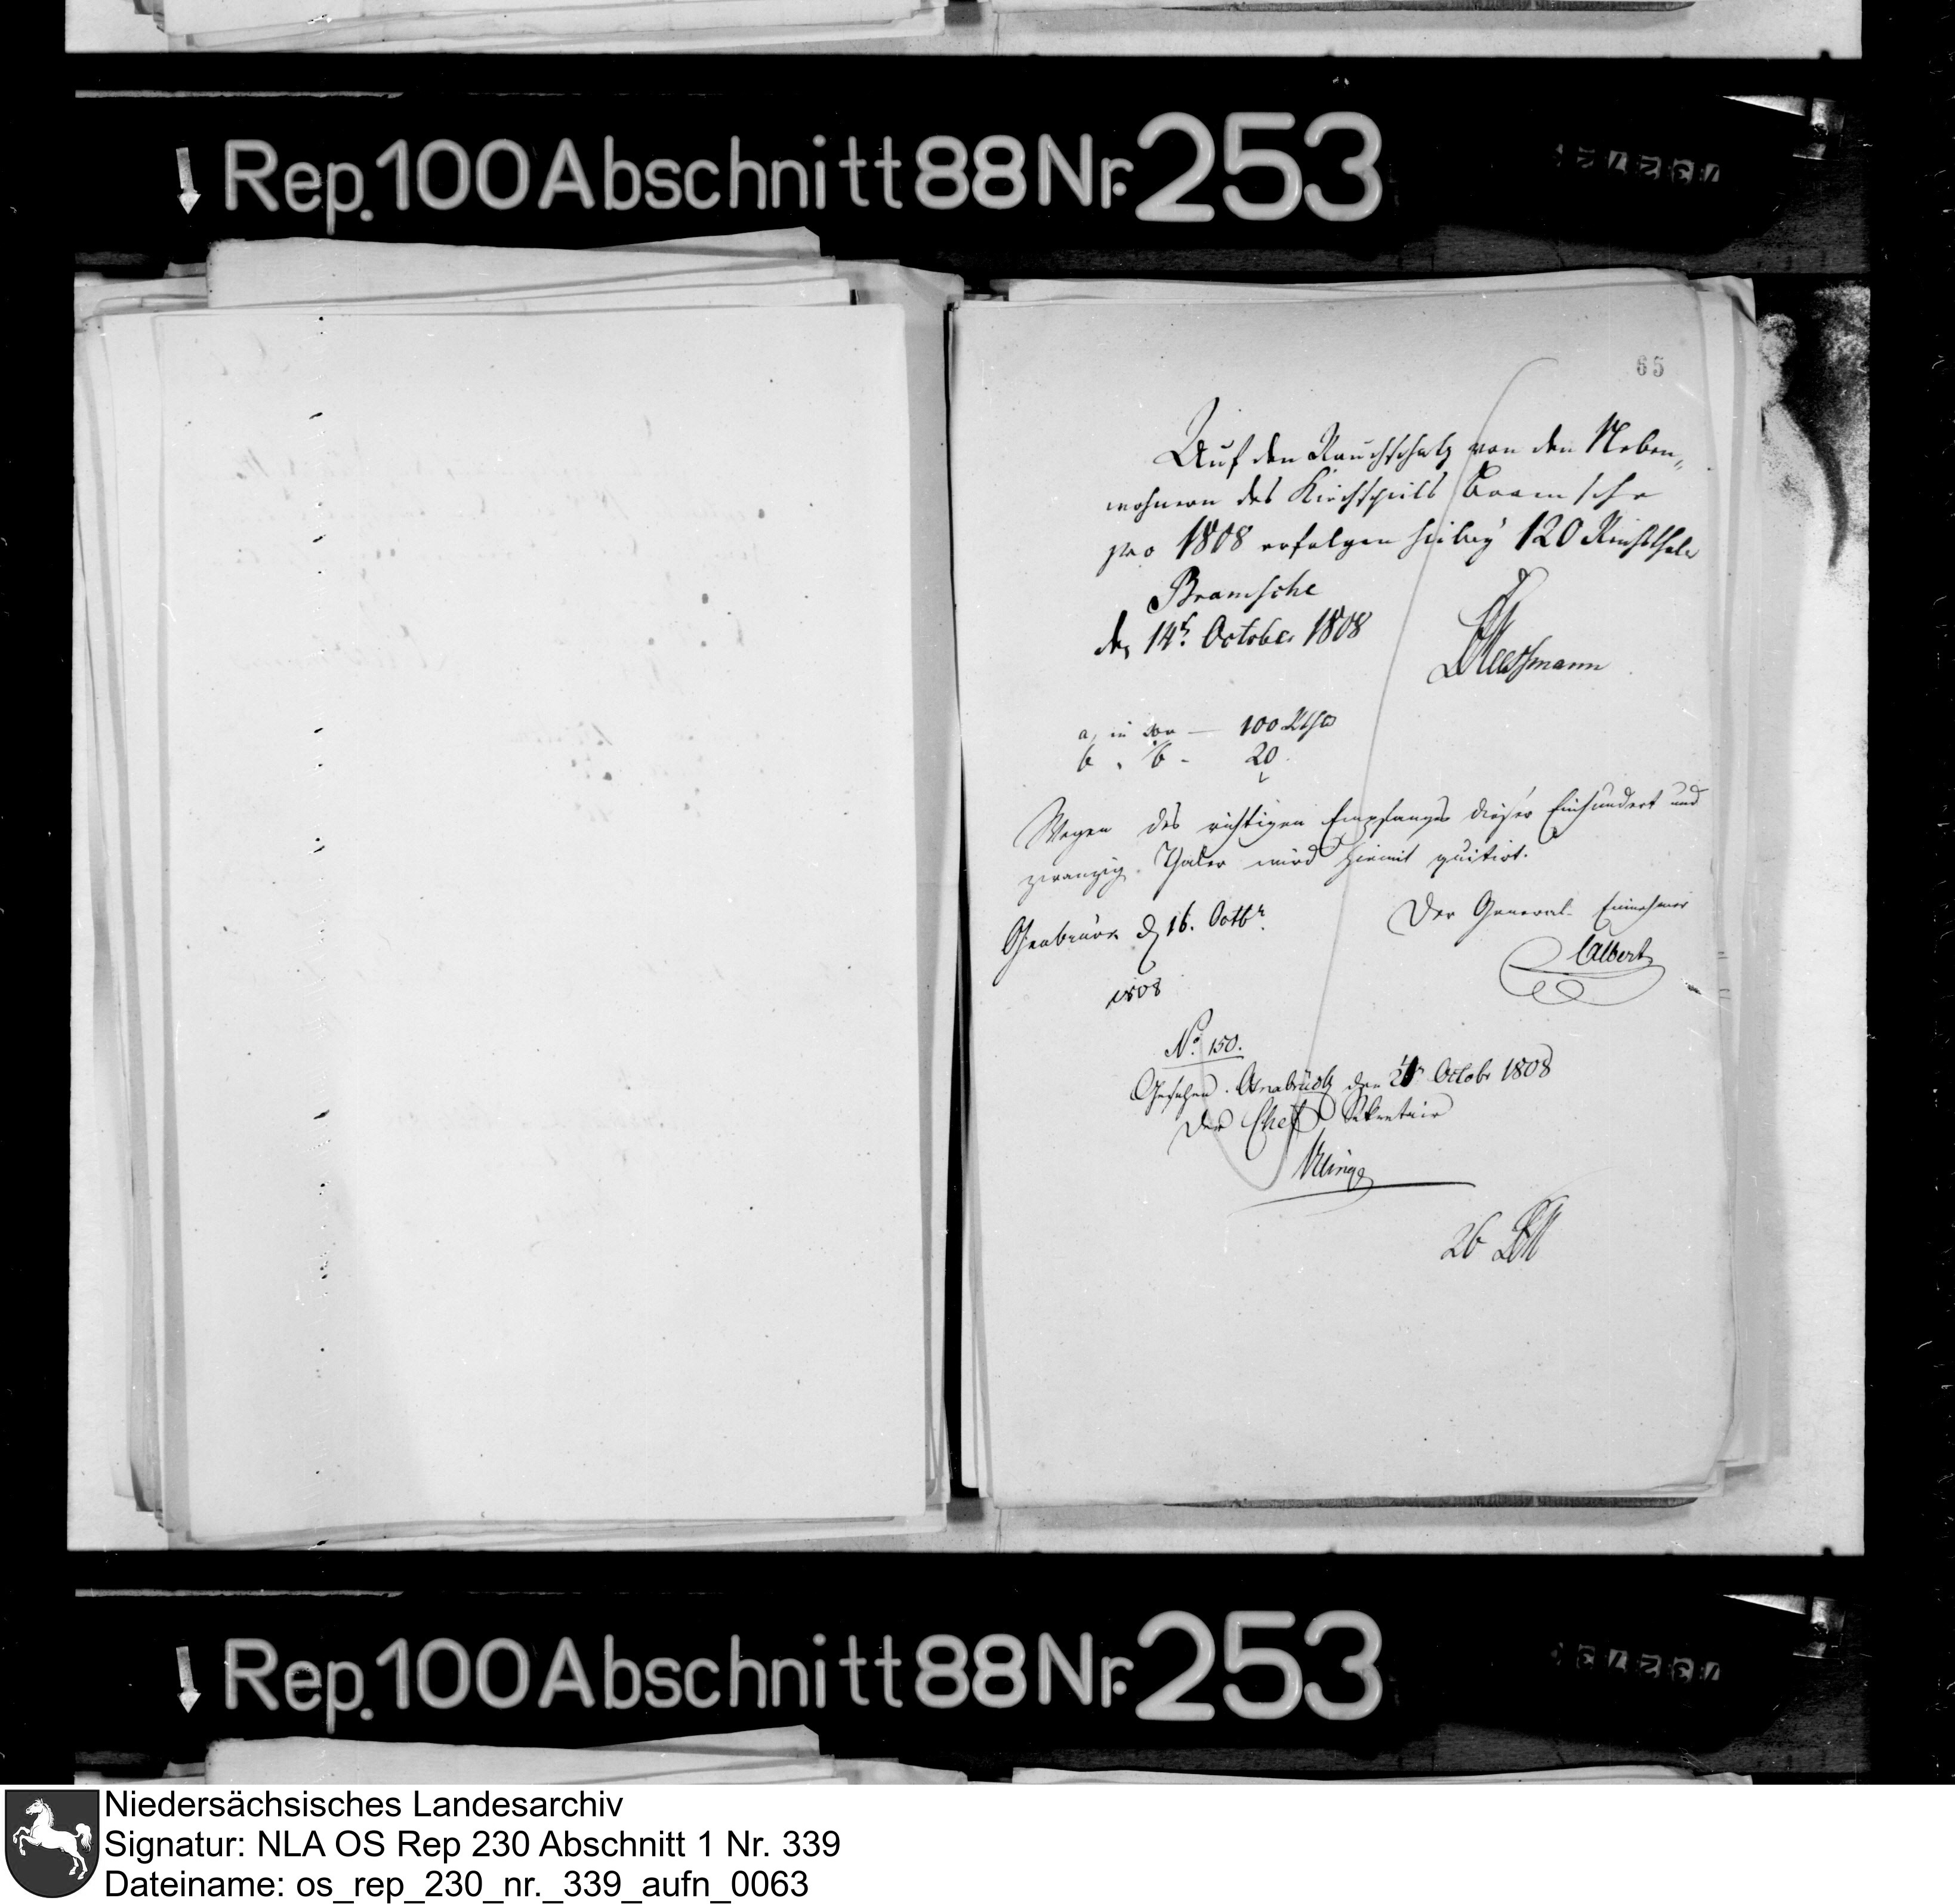 Rep.100 Abschnitt 88 Nr. 253
65
Auf den Rauchschatz von den Neben„
wohnern des Kirchspiels Bramsche
pro 1808 erfolgen hiebey 120 Reichsthaler
Bramsche
den 14t. October 1808
a, in — 100 Rthlr
b „ 20
Wegen des richtigen Empfanges dieser Einhundert und
zwanzig Thaler wird hiemit quitirt.
Osnabrück d 16. Octbr.
Der General-Einnehmer
1808
No. 150.
Gesehen. Osnabrück den Octobr 1808
Der Chef Sekretair
26
Rep.100 Abschnitt 88 Nr. 253
Niedersächsisches Landesarchiv
Signatur: NLA OS Rep 230 Abschnitt 1 Nr. 339
Dateiname: os_rep_230_nr._339_aufn_0063